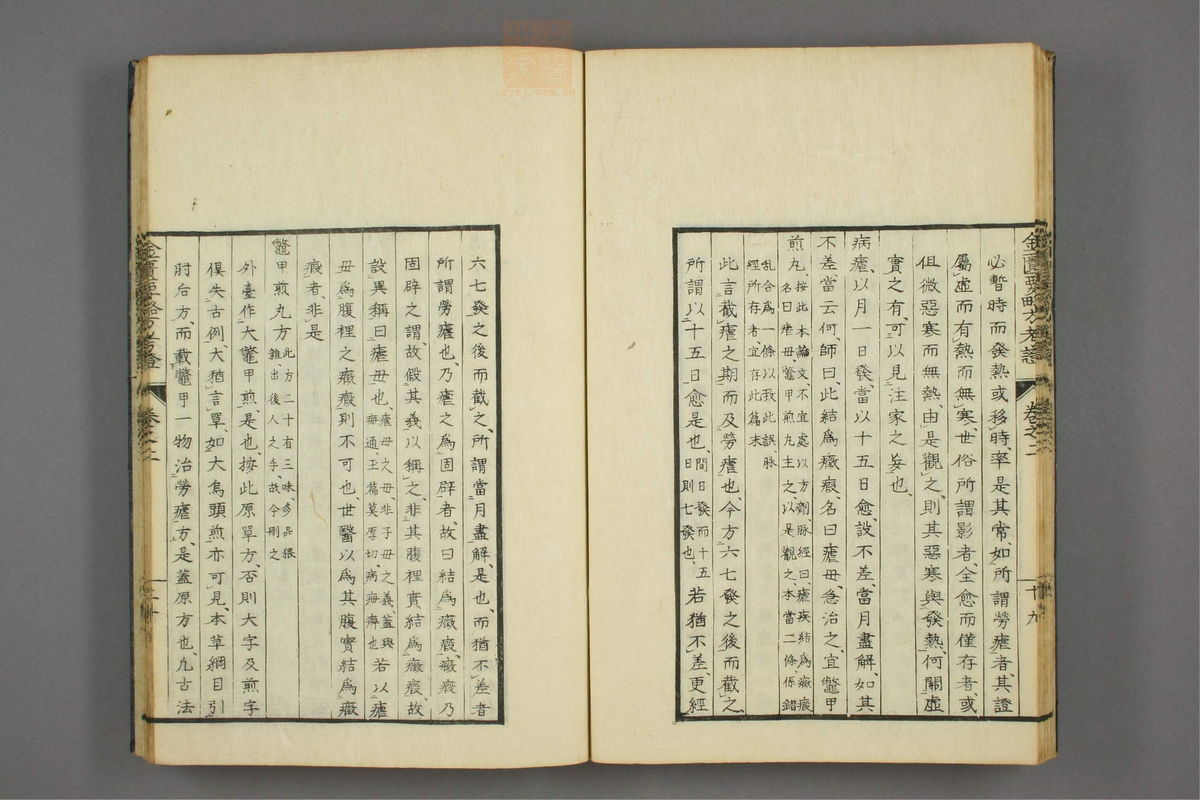 金匱要略方考證 卷之二 十九
必暫時而發熱或移時、率是其常、如所謂勞瘧者、其證
屬虛而有熱而無寒、世俗所謂影者、全愈而僅存者或
但微惡寒而無熱、由是觀之、則其惡寒與發熱、何關虛
實之有、可以見注家之妄也、
病瘧、以月一日發、當以十五日愈、設不差、當月盡解、如其
不差、當云何、師曰、此結爲癥瘕、名曰瘧母、急治之、宜鱉甲
煎丸、按此本論文、不宜處以方劑、脉經曰、瘧疾結爲癥瘕
名曰瘧母、鱉甲煎丸主之、以是觀之、本當二條、係錯
亂合爲一條、以致此誤、脉
經所存者、宜存此篇末
此言截瘧之期、而及勞瘧也、今方六七發之後而截之、
所謂以十五日愈是也、間日發而十五
日則七發也、若猶不差、更經
六七發之後而截之、所謂當月盡解、是也、而猶不差者
所謂勞瘧也、乃瘧之爲固辟者、故曰結爲癥瘕、癥瘕乃
固辟之謂、故假其義以稱之、非其腹裡實結爲癥瘕、故
設異稱曰瘧母也、瘧母之母、非子母之義、蓋與
痗通、玉篇莫厚切、病痗癖也、若以瘧
母爲腹裡之癥瘕則不可也、世醫以爲其腹實結爲癥
瘕者、非是
鱉甲煎丸方 此方二十有三味、多品猥
雜、出後人之手、故今刪之
外臺作大鱉甲煎、是也、按此原單方、否則大字及煎字
俱失古例、大猶言單、如大烏頭煎、亦可見、本草綱目引
肘后方、而載鱉甲一物治勞瘧方、是蓋原方也、凡古法
金匱要略方考證 卷之二 二十